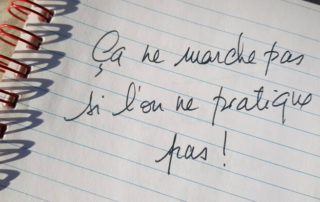 Ça ne marche pas
si l'on ne pratique
pas !